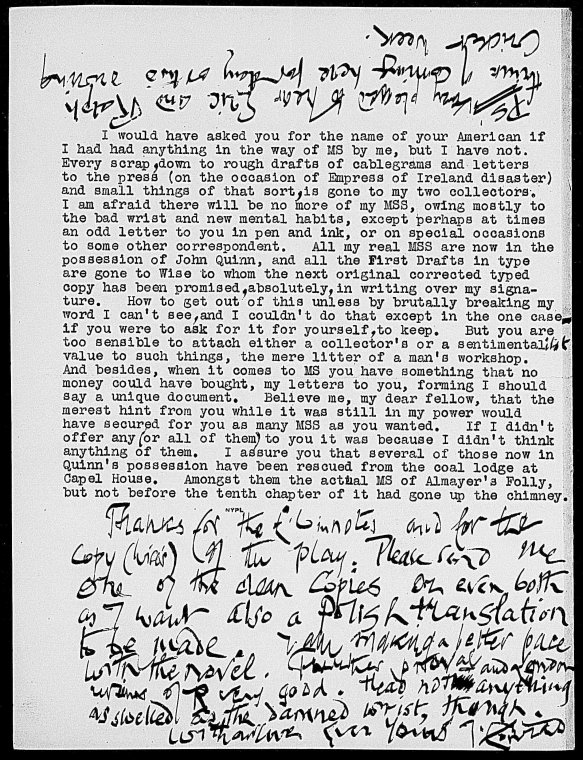 PS Very pleased to hear Eric and Ralph
think of coming here for day or two during
Cricket week.
I would have asked you for the name of your American if
I had had anything in the way of MS by me, but I have not.
Every scrap, down to rough drafts of cablegrams and letters
to the press (on the occasion of Empress of Ireland disaster)
and small things of that sort, is gone to my two collectors.
I am afraid there will be no more of my MSS, owing mostly to
the bad wrist and new mental habits, except perhaps at times
an odd letter to you in pen and ink, or on special occasions
to some other correspondent. All my real MSS are now in the
possession of John Quinn, and all the First Drafts in type
are gone to Wise to whom the next original corrected typed
copy has been promised, absolutely, in writing over my signa-
ture. How to get out of this unless by brutally breaking my
word I can't see, and I couldn't do that except in the one case
if you were to ask for it for yourself, to keep. But you are
too sensible to attach either a collector's or a sentimentalist
value to such things, the mere litter of a man's workshop.
And besides, when it comes to MS you have something that no
money could have bought, my letters to you, forming I should
say a unique document. Believe me, my dear fellow, that the
merest hint from you while it was still in my power would
have secured for you as many MSS as you wanted. If I didn't
offer any (or all of them) to you it was because I didn't think
anything of them. I assure you that several of those now in
Quinn's possession have been rescued from the coal lodge at
Capel House. Amongst them the actual MS of Almayer's Folly,
but not before the tenth chapter of it had gone up the chimney.
NYPL
Thanks for the film notes and for the
copy (wires) of the play. Please send me
one of the clean copies or even both
as I want also a Polish translation
to be made. I am making a better pace
with the novel. Further proval and
of very good. Head not anything
as swelled as the damned wrist, though.
With our love Ever Yours J. Conrad